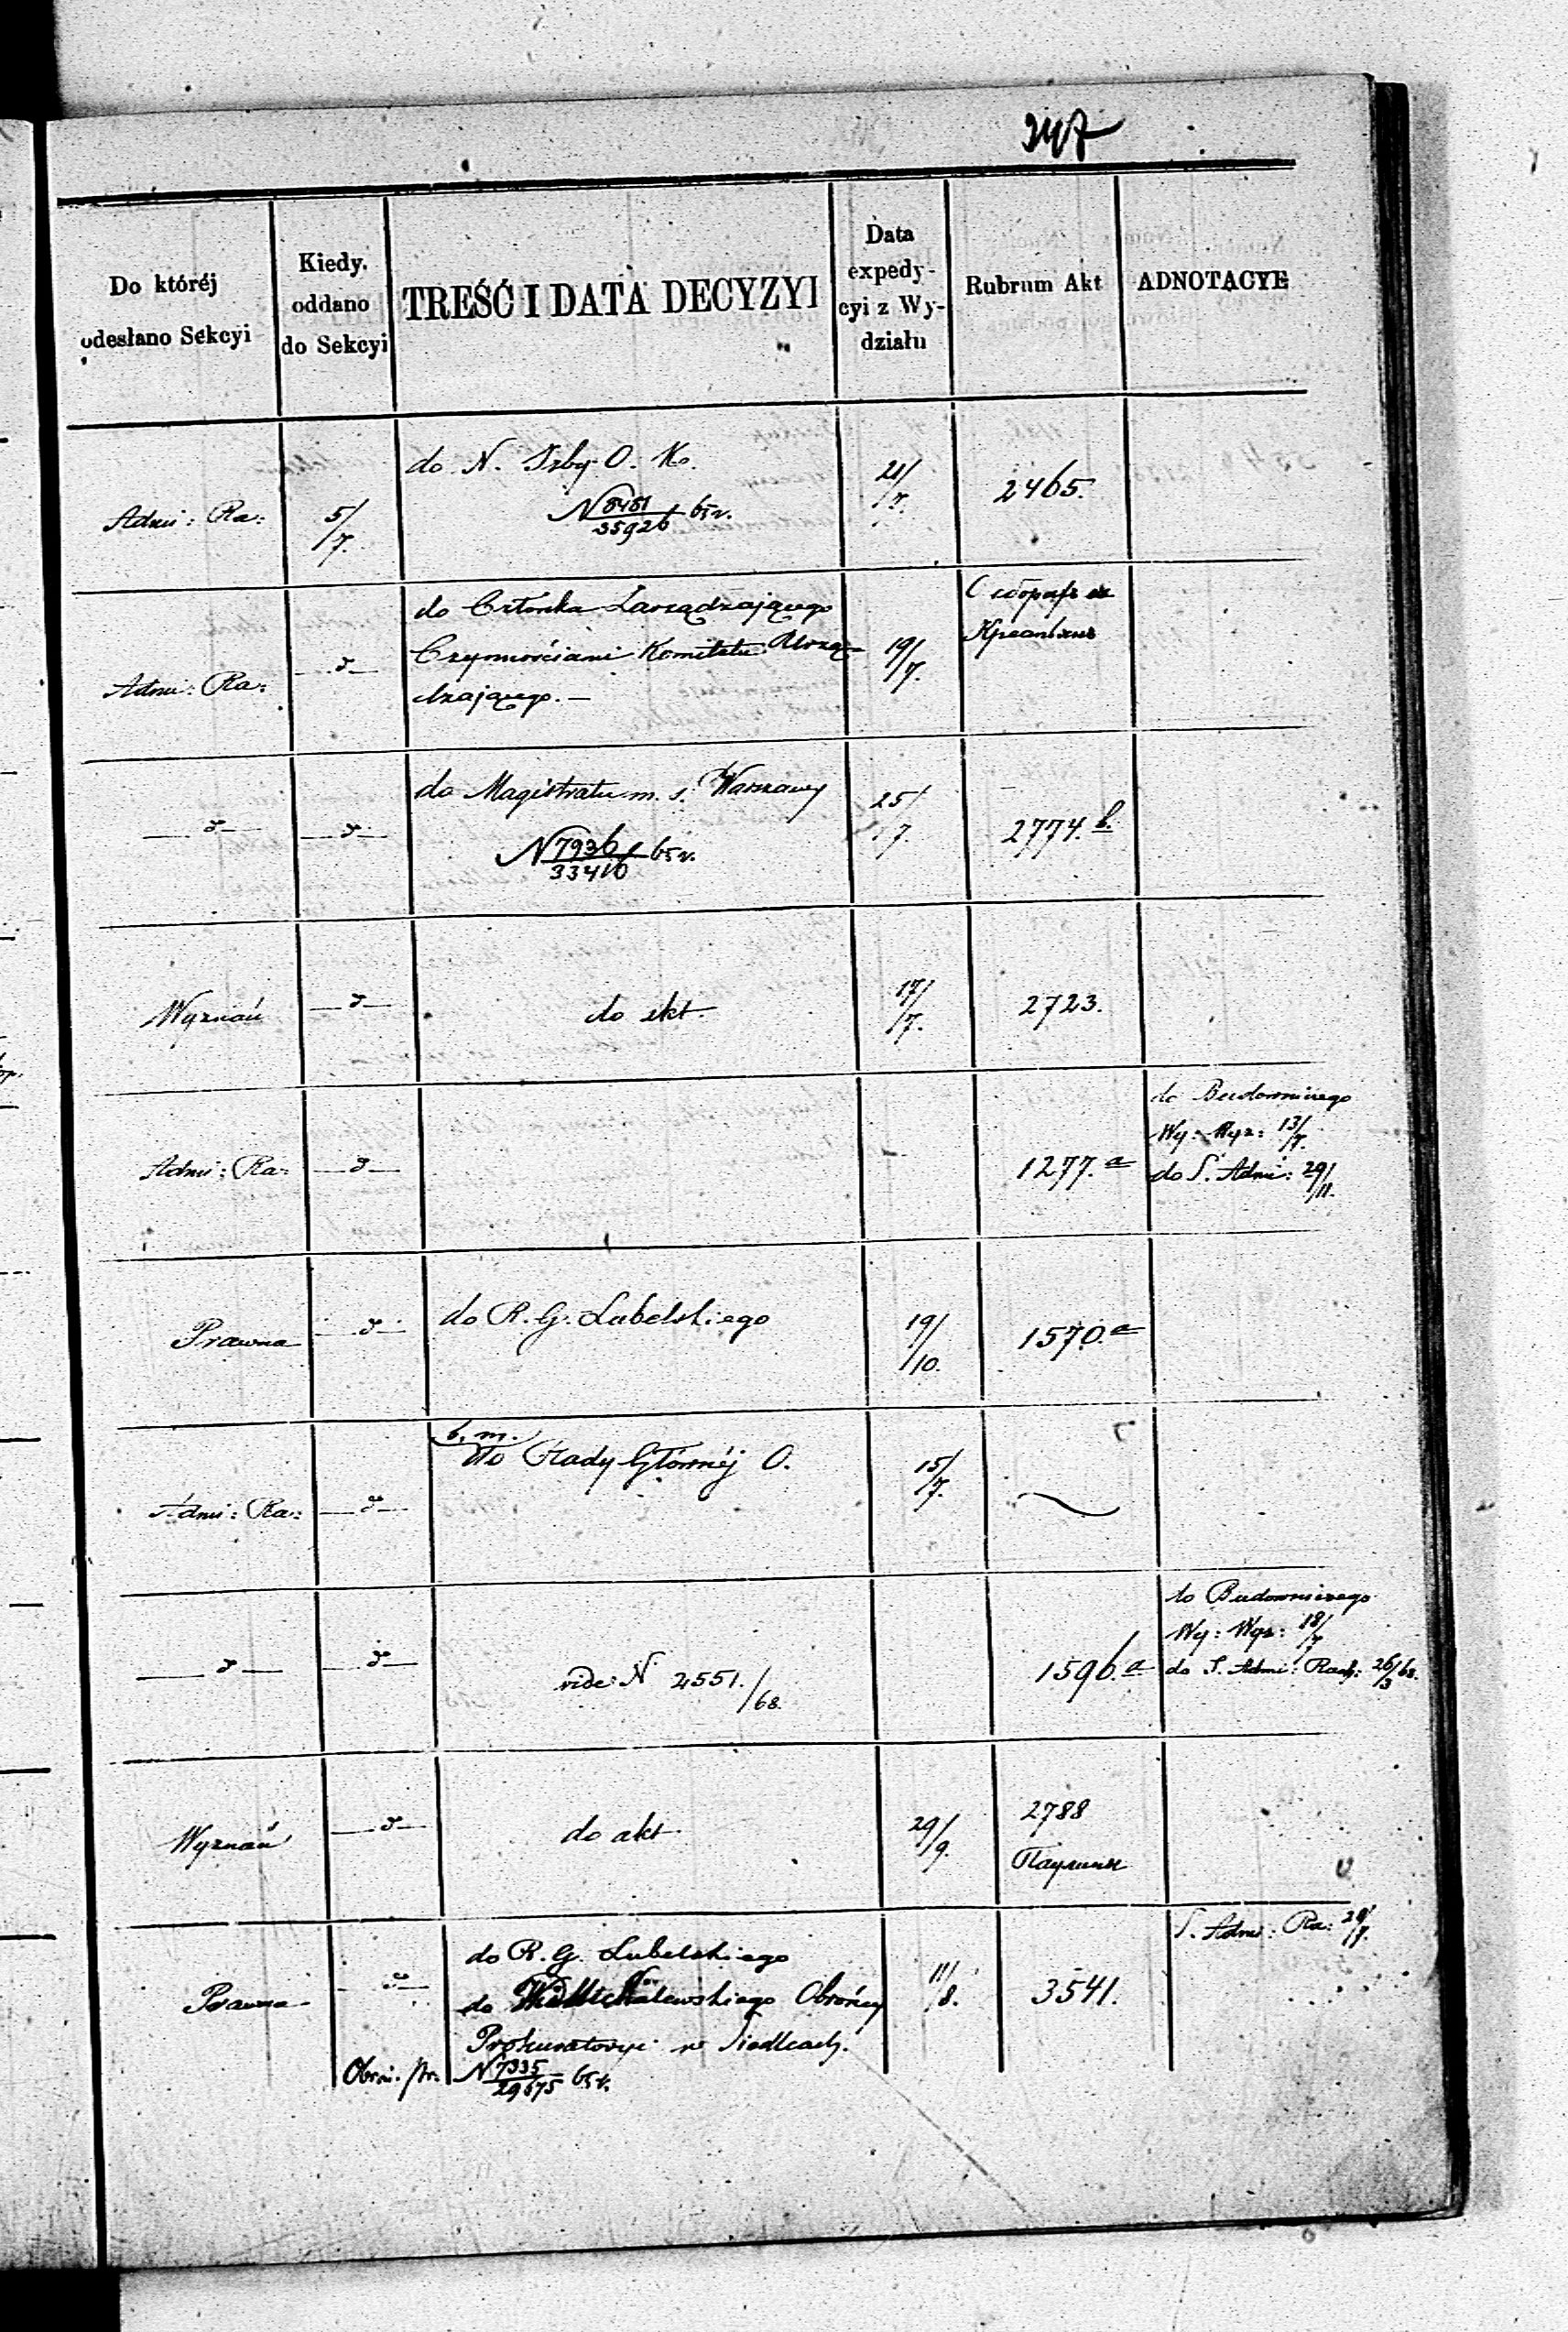 247
Do któréj
odesłano Sekcyi
Kiedy.
oddano
do Sekcyi
TREŚĆ I DATA DECYZYI
Data
expedy-
cyi z Wy-
działu
Rubrum Akt
ADNOTACYE
Admi: Ra:
5/7.
do N. Izby O. Ko.
N 8481/35926 65 r.
21/7.
2465.
Admi: Ra:
do Członka Zarządzającego
Czynnościami Komitetu Urzą-
dzającego. —
19/7.
do Magistratu m. s. Warszawy
N 7936/33410 65 r.
25/7.
2774. b.
Wyznań
do akt.
17/7.
2723.
Admi: Ra:
1277. a
do Budowniczego
Wy: Wyz: 13/7.
do S. Admi: 29/11.
Prawna
do R. G. Lubelskiego
19/10.
1570. a
Admi: Ra:
b. m.
do Rady Głównéj O.
15/7.
vide N 2551./68.
1596. a
do Budowniczego
Wy: Wyz: 18/7
do S. Admi: Rach: 26/3 68.
Wyznań
do akt
29/9.
2788
Prawna
do R. G. Lubelskiego
do Obrońcy
Prokuratoryi w Siedlcach.
N 7335/29675 65 r.
11/8.
3541.
S. Admi: Ra: